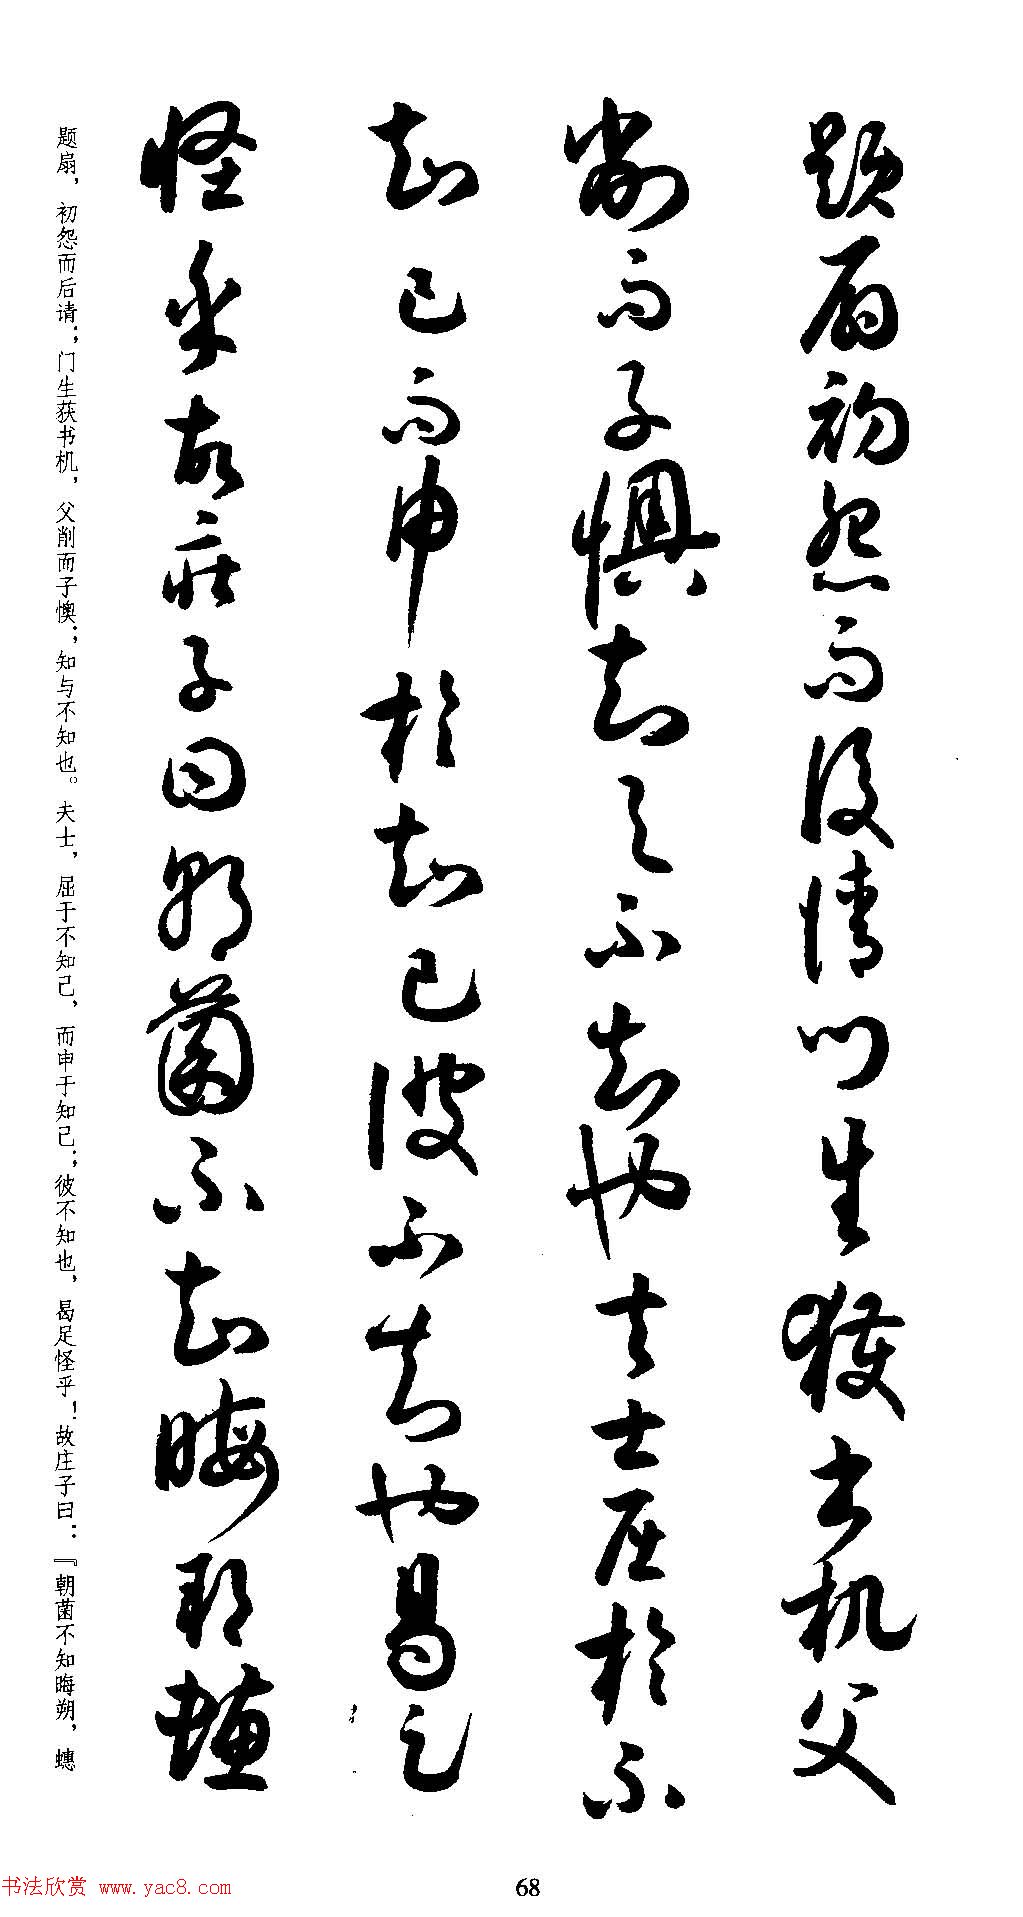 題扇初怨而後請門生獲書机父
削而子懊知与不知也夫士屈於不
知己而申於知己彼不知也曷足
怪乎故莊子曰朝菌不知晦朔蟪
题扇，初怨而后请；门生获书机，父削而子懊；知与不知也。夫士，屈于不知己，而申于知己；彼不知也，曷足怪乎！故庄子曰：『朝菌不知晦朔，蟪
书法欣赏 www.yac8.com
68